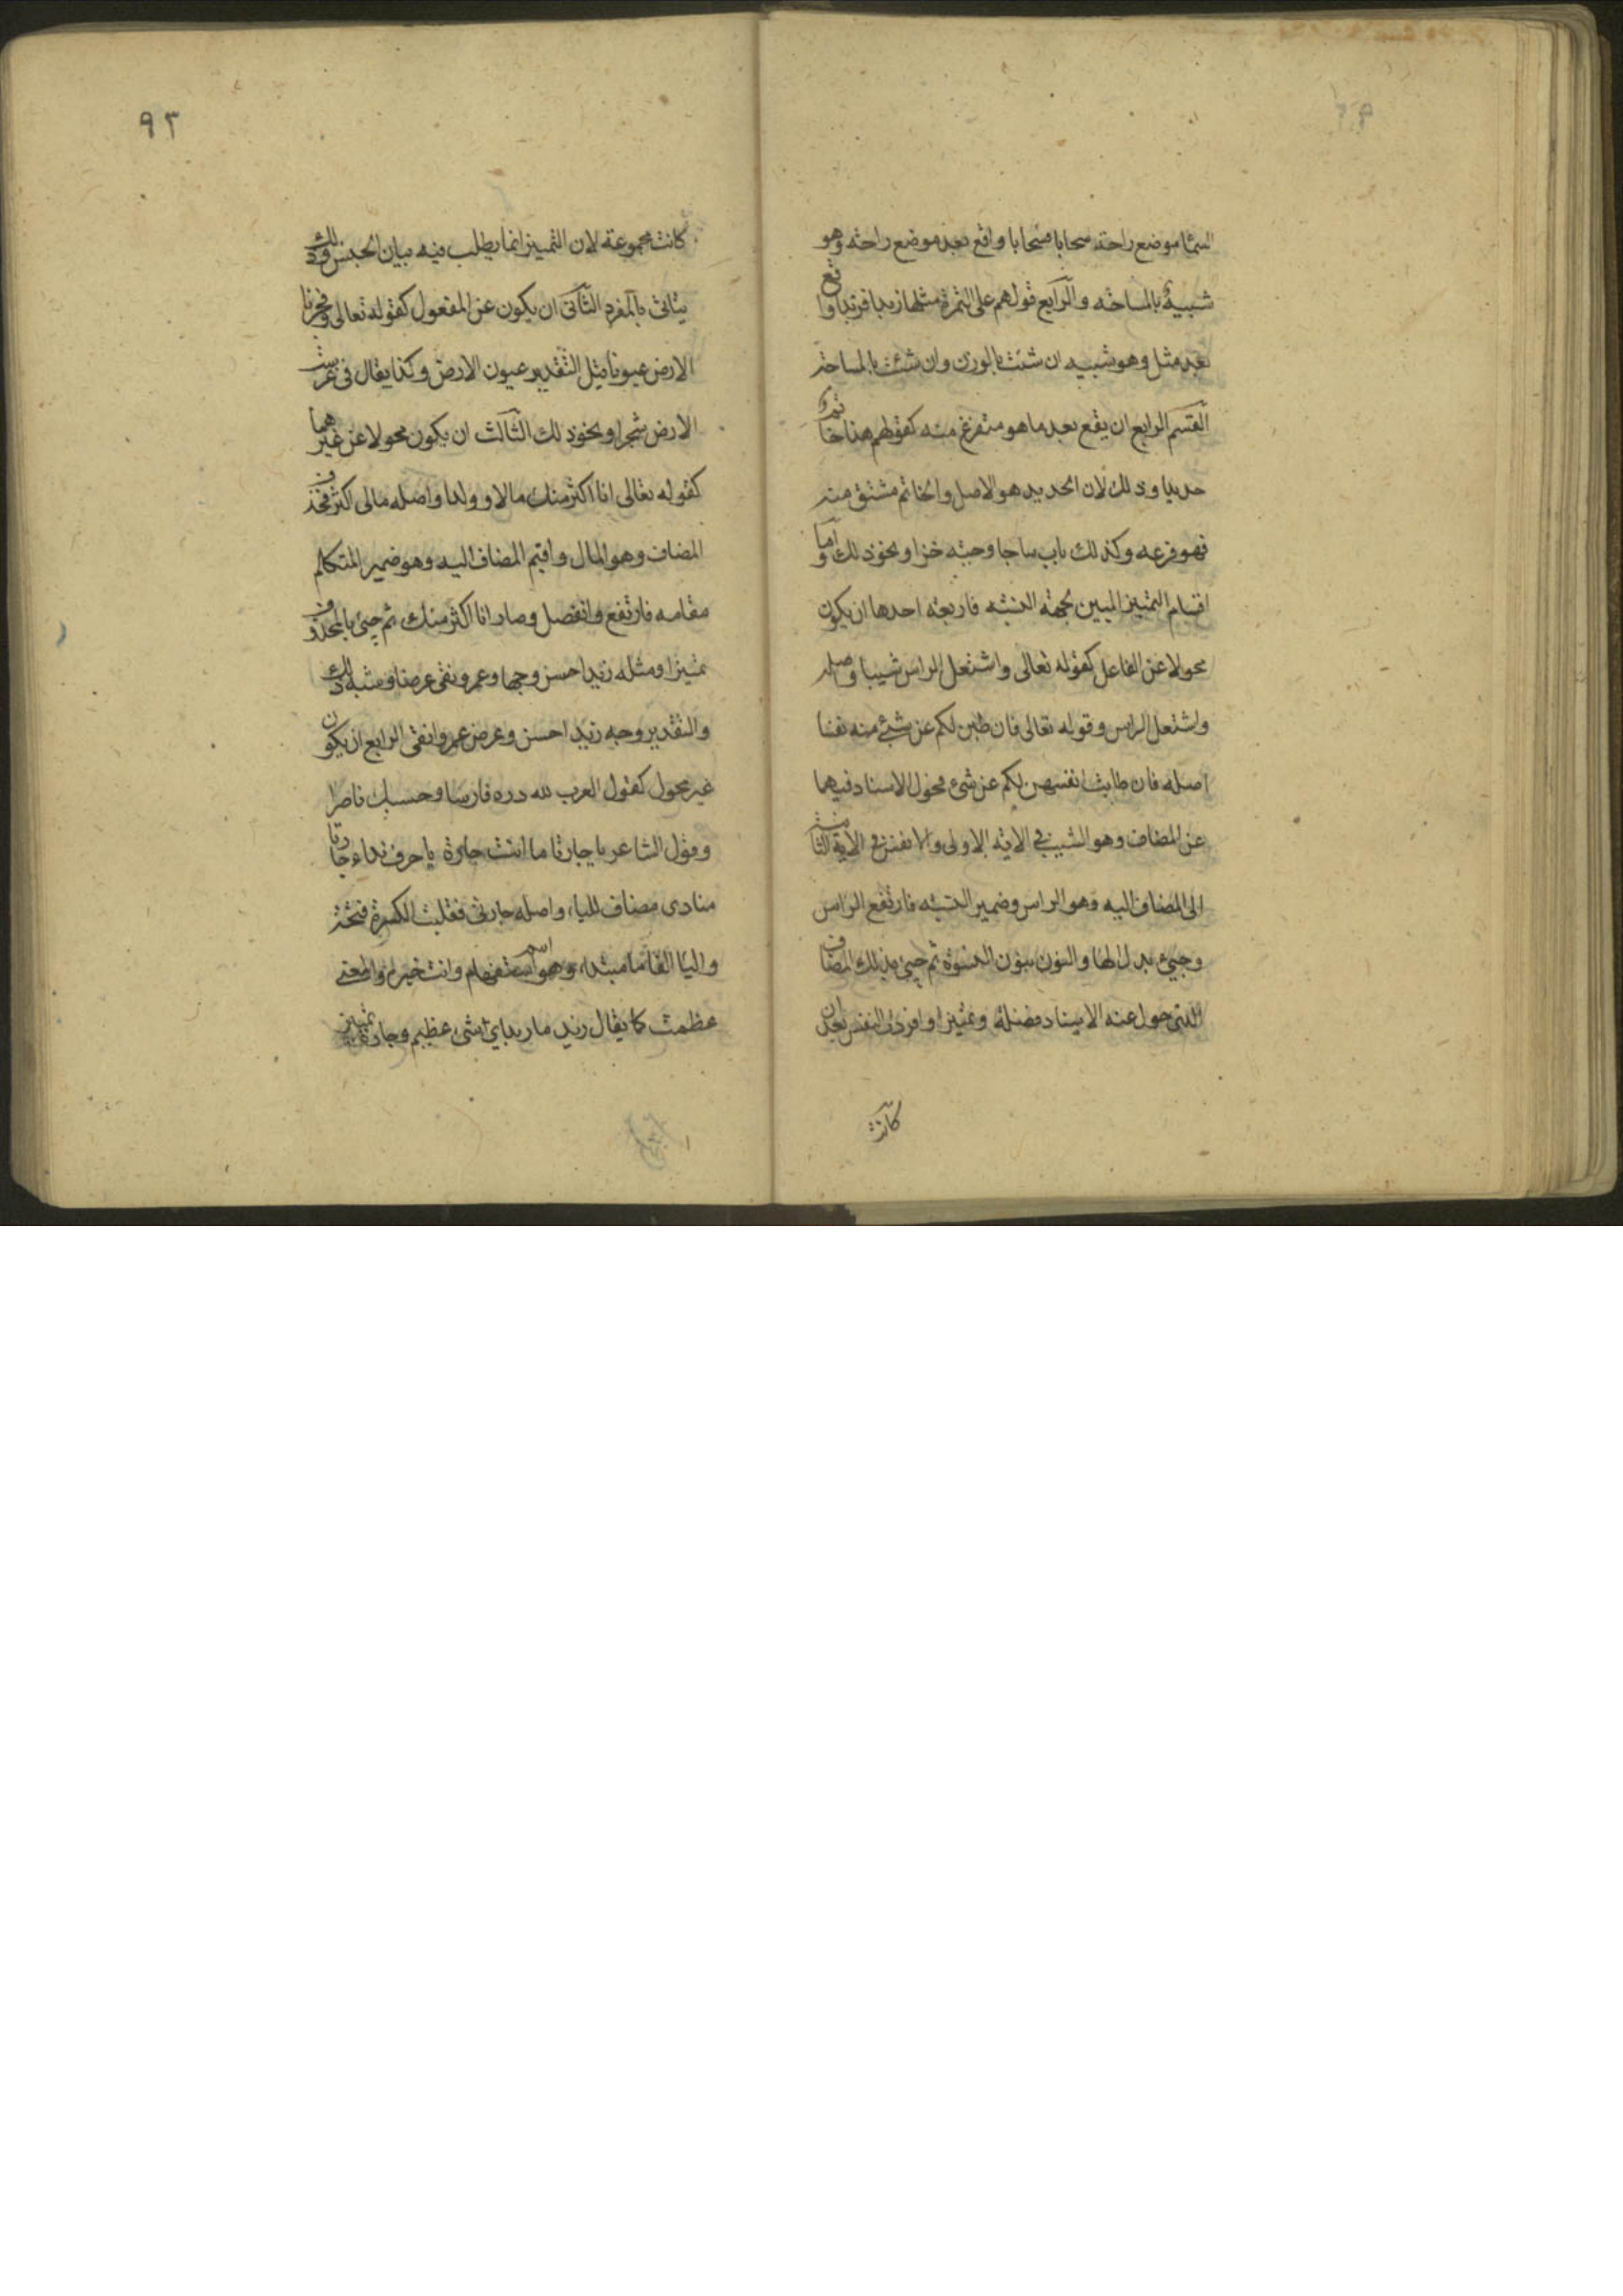 السما موضع راحة سحابا فسحابا واقع بعد موضع راحة وهو
شبيه بالمساحة والرابع قولهم على التمرة مثلها زبدا فزبدا واقع
بعد مثل وهو شبيه ان شئت بالوزن وان شئت بالمساحة
القسم الرابع ان يقع بعد ما هو متفرع منه كقولهم هذا خاتم
حديدا وذلك لان الحديد هو الاصل والخاتم مشتق منه
فهو فرعه وكذلك باب ساجا وجبة خزا ونحو ذلك واما
اقسام التمييز المبين لجهة النسبة فاربعة احدها ان يكون
محولا عن الفاعل كقوله تعالى واشتعل الراس شيبا اصله
واشتعل الراس وقوله تعالى فان طبن لكم عن شيء منه نفسا
اصله فان طابت انفسهن لكم عن شيء فحول الاسناد فيهما
عن المضاف وهو الشيب في الاية الاولى والانفس في الاية الثانية
الى المضاف اليه وهو الراس وضمير النسبة فارتفع الراس
وجيء بدل الها والنون بنون النسوة ثم جيء بذلك المضاف
الذي حول عنه الاسناد فضلة وتمييزا وافردت النفس بعد ان
كانت
٩٢
كانت مجموعة لان التمييز انما يطلب فيه بيان الجنس وذلك
يتاتى بالمفرد الثاني ان يكون عن المفعول كقوله تعالى وفجرنا
الارض عيونا قيل التقدير عيون الارض وكذا يقال في غرست
الارض شجرا ونحو ذلك الثالث ان يكون محولا عن غيرهما
كقوله تعالى انا اكثر منك مالا وولدا واصله مالى اكثر فحذف
المضاف وهو المال واقيم المضاف اليه وهو ضمير المتكلم
مقامه فارتفع وانفصل وصار انا اكثر منك ثم جيء بالمحذوف
تمييزا ومثله زيد احسن وجها وعمرو نقى عرضا وشبه ذلك
والتقدير وجه زيد احسن وعرض عمرو انقى الرابع ان يكون
غير محول كقول العرب لله دره فارسا وحسبك ناصرا
وقول الشاعر يا جارتا ما انت جارة يا حرف نداء جارتا
منادى مضاف للياء واصله جارتي فقلبت الكسرة فتحة
واليا الفا ما مبتداء وهو اسم استفهام وانت خبره والمعنى
عظمت كما يقال زيد ما زيد اي شي عظيم وجارة تمييز